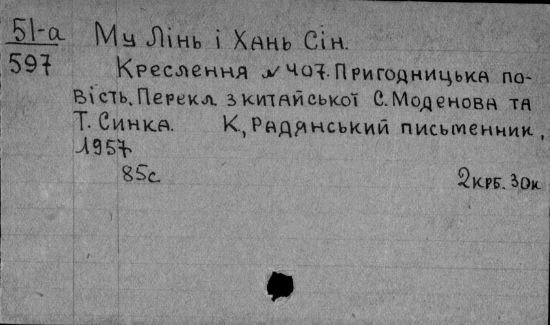 51-а
597
Му Лінь і Хань Сін.
Креслення № 407. Пригодницька по-
вість. Перекл. з китайської С. Моденова та
Т. Синка. К, Радянський письменник,
1957
85с 2крб. 30к